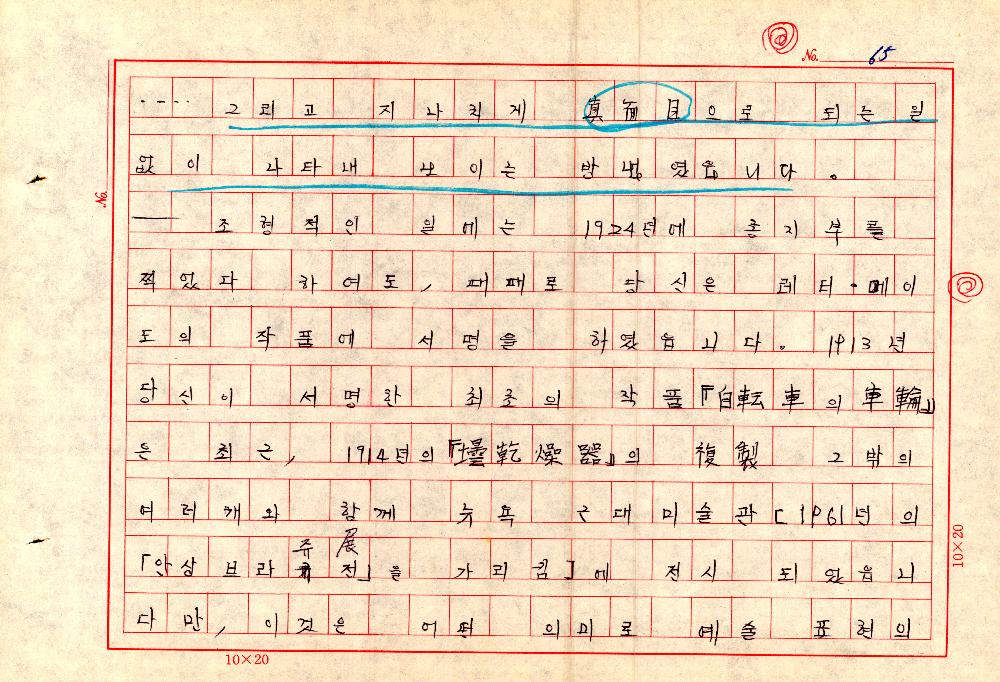 No. 65
‥‥ 그리고 지나치게 真面目으로 되는 일
없이 나타내 보이는 방법였읍니다。
── 조형적인 일에는 1924년에 종지부를
찍었다 하여도, 때때로 당신은 레터·메이
드의 작품에 서명을 하였읍니다。 1913년
당신이 서명한 최초의 작품『自転車의 車輪』
은 최근, 1914년의『壜乾燥器』의 複製 그밖의
여러개와 함께 뉴욕 근대미술관[1961년의
「앗상브라쥬展」을 가리킴]에 전시 되었읍니
다만, 이것은 어떤 의미로 예술 표현의
No.
10×20
10×20